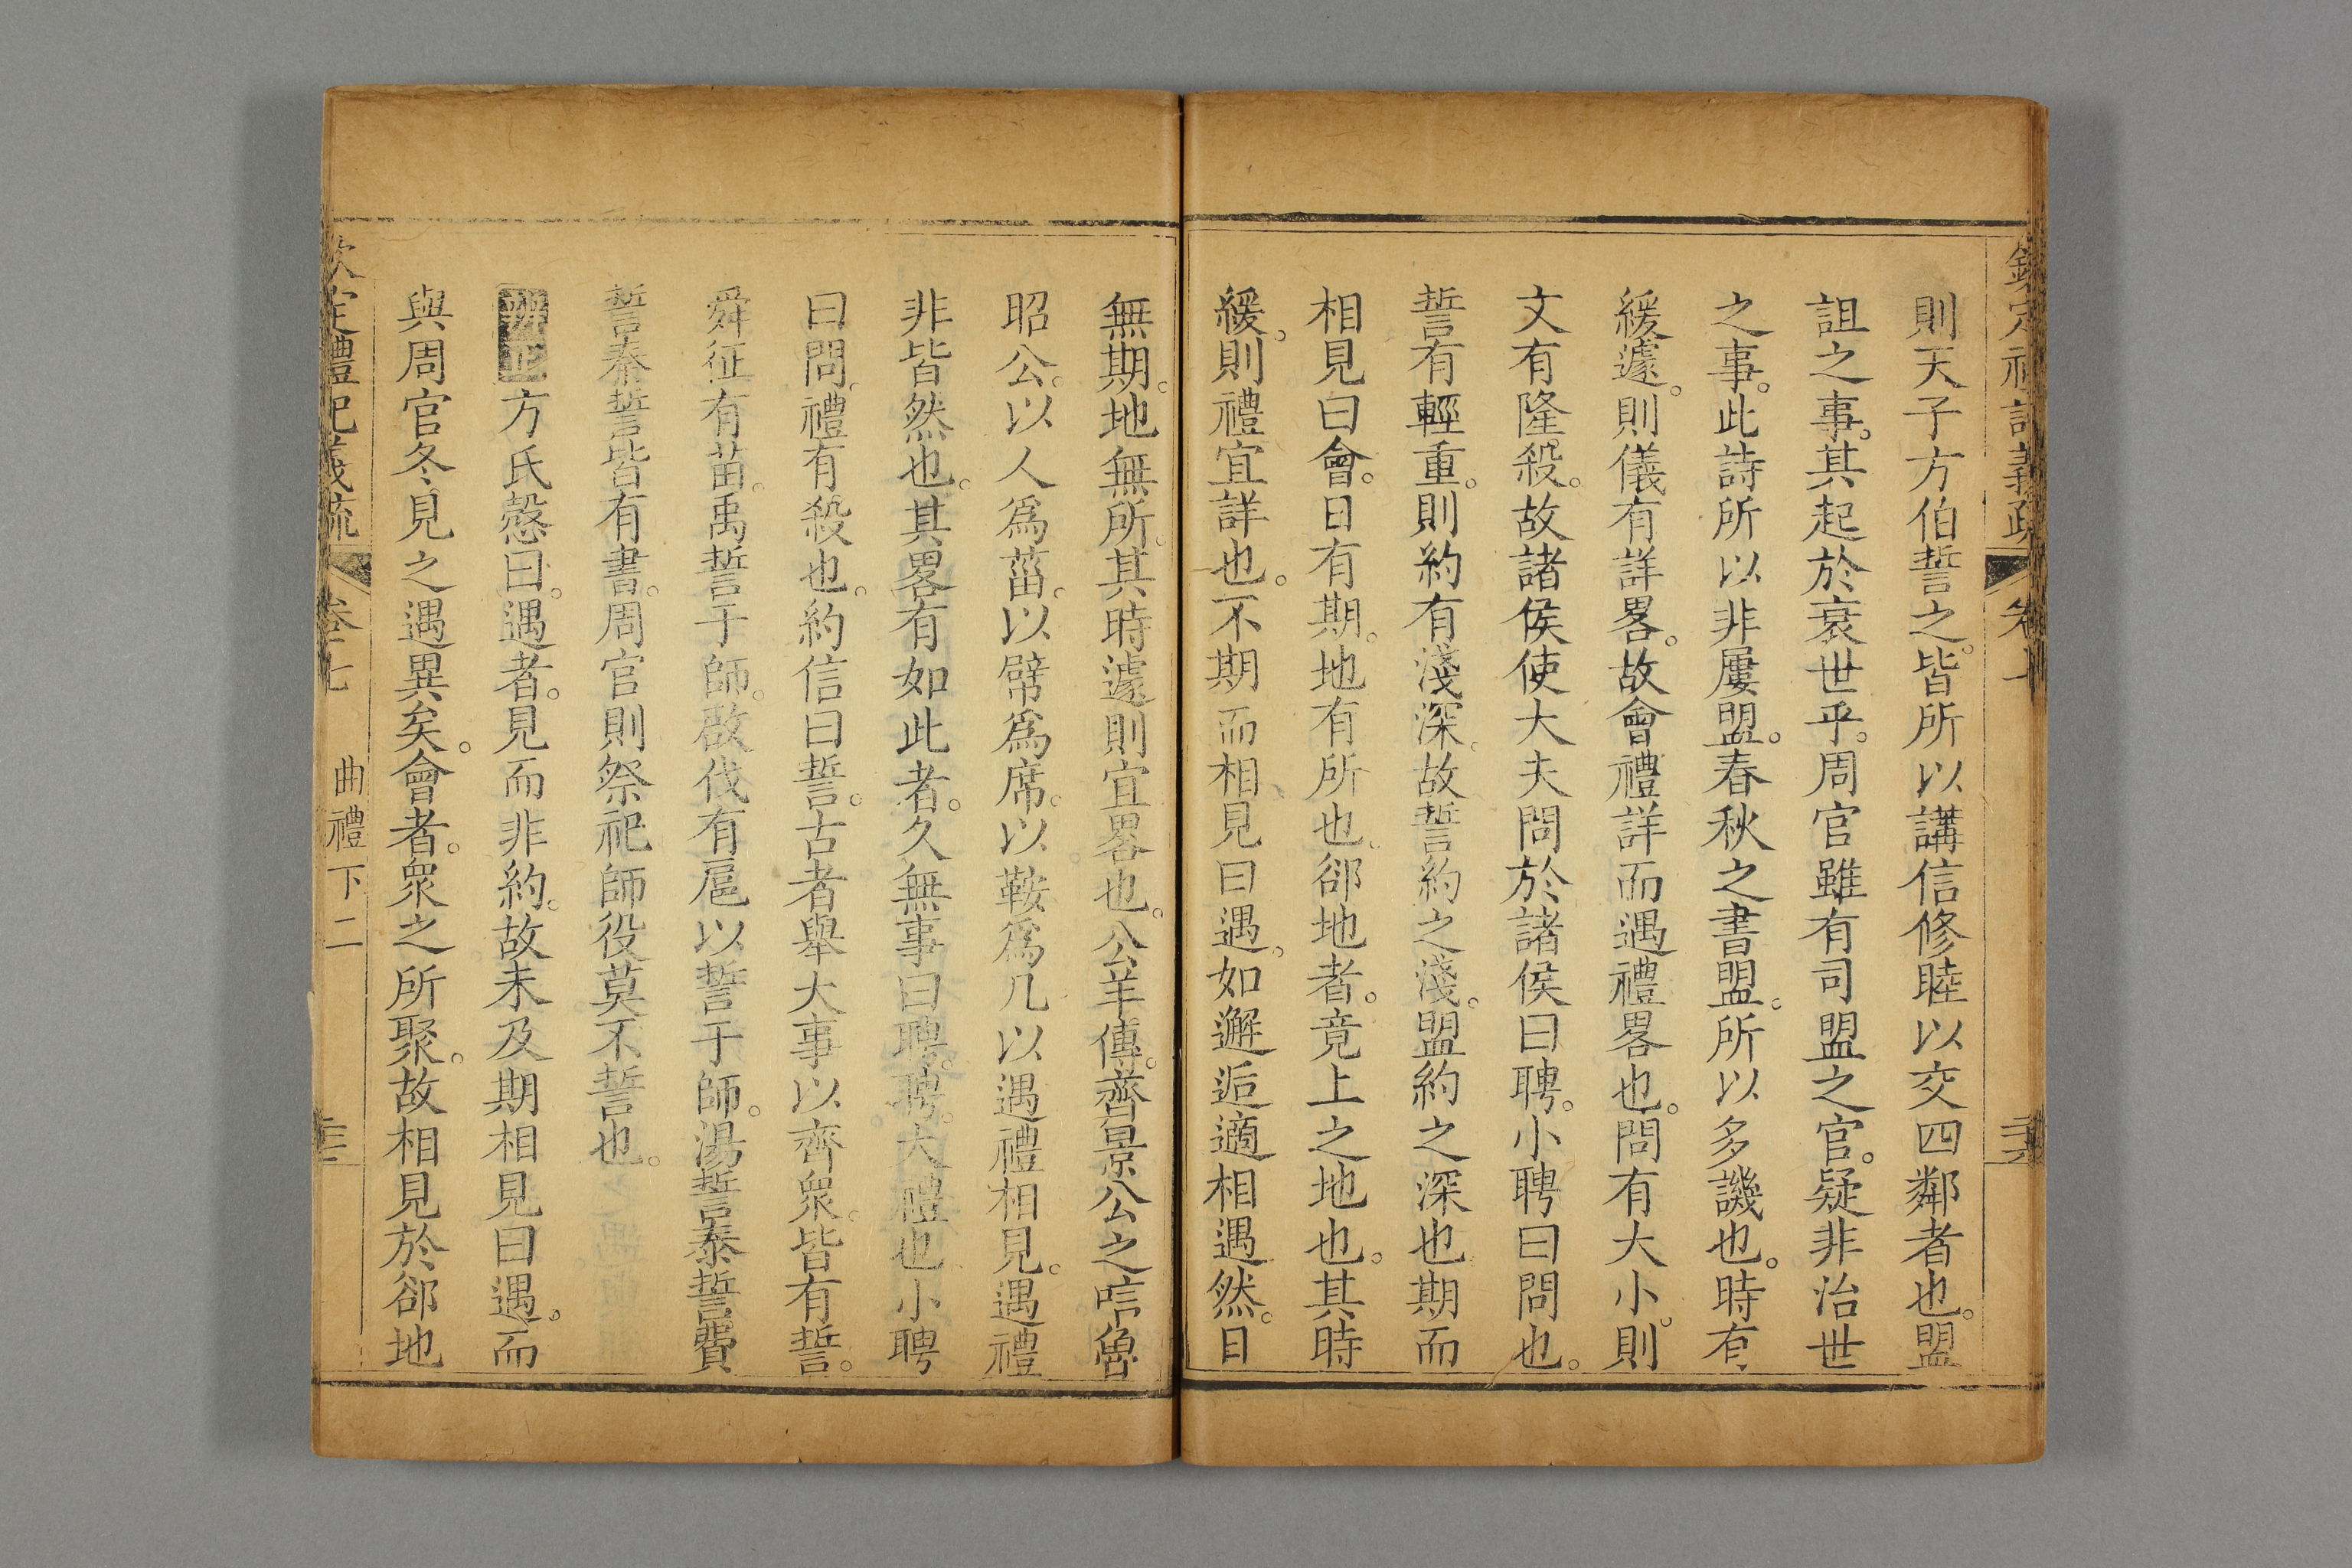 欽定禮記義疏 卷七
則天子方伯誓之。皆所以講信修睦以交四鄰者也。盟
詛之事。其起於衰世乎。周官雖有司盟之官。疑非治世
之事。此詩所以非屢盟。春秋之書盟。所以多譏也。時有
緩遽。則儀有詳畧。故會禮詳而遇禮畧也。問有大小。則
文有隆殺。故諸侯使大夫問於諸侯曰聘。小聘曰問也。
誓有輕重。則約有淺深。故誓約之淺。盟約之深也期而
相見曰會。日有期。地有所也。郤地者。竟上之地也。其時
緩。則禮宜詳也。不期而相見曰遇。如邂逅適相遇然。日
無期。地無所。其時遽則宜畧也。公羊傳。齊景公之唁魯
昭公。以人爲菑。以幦爲席。以鞍爲几以遇禮相見。遇禮
非皆然也。其畧有如此者。久無事曰聘。聘。大禮也小聘
曰問。禮有殺也。約信曰誓。古者舉大事以齊衆。皆有誓。
舜征有苗。禹誓于師。啟伐有扈以誓于師。湯誓泰誓費
誓秦誓皆有書。周官則祭祀師役莫不誓也。
辨正 方氏慤曰。遇者。見而非約。故未及期相見曰遇。而
與周官冬見之遇異矣。會者。衆之所聚。故相見於郤地
欽定禮記義疏 卷七 曲禮下二